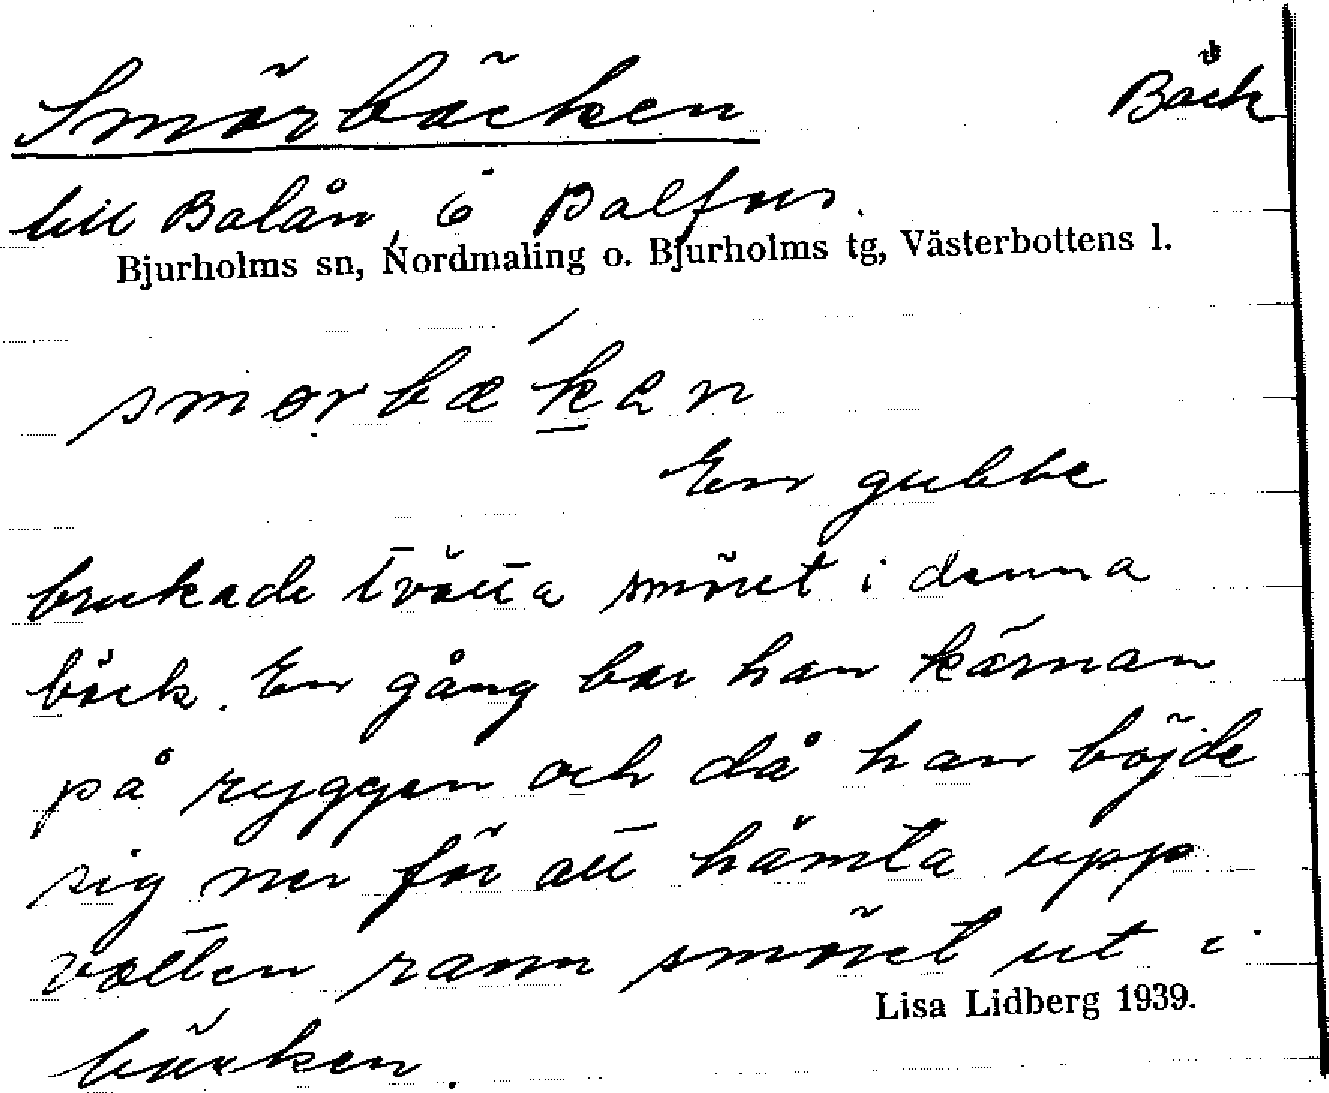 Smörbäcken Bäck
till Balån, ö Balfors.
Bjurholms sn, Nordmaling o. Bjurholms tg, Västerbottens l.
smørbækan
En gubbe
brukade tvätta smöret i denna
bäck. En gång bar han kärnan
på ryggen och då han böjde
sig ner för att hämta upp
vatten rann smöret ut i
bäcken.
Lisa Lidberg 1939.